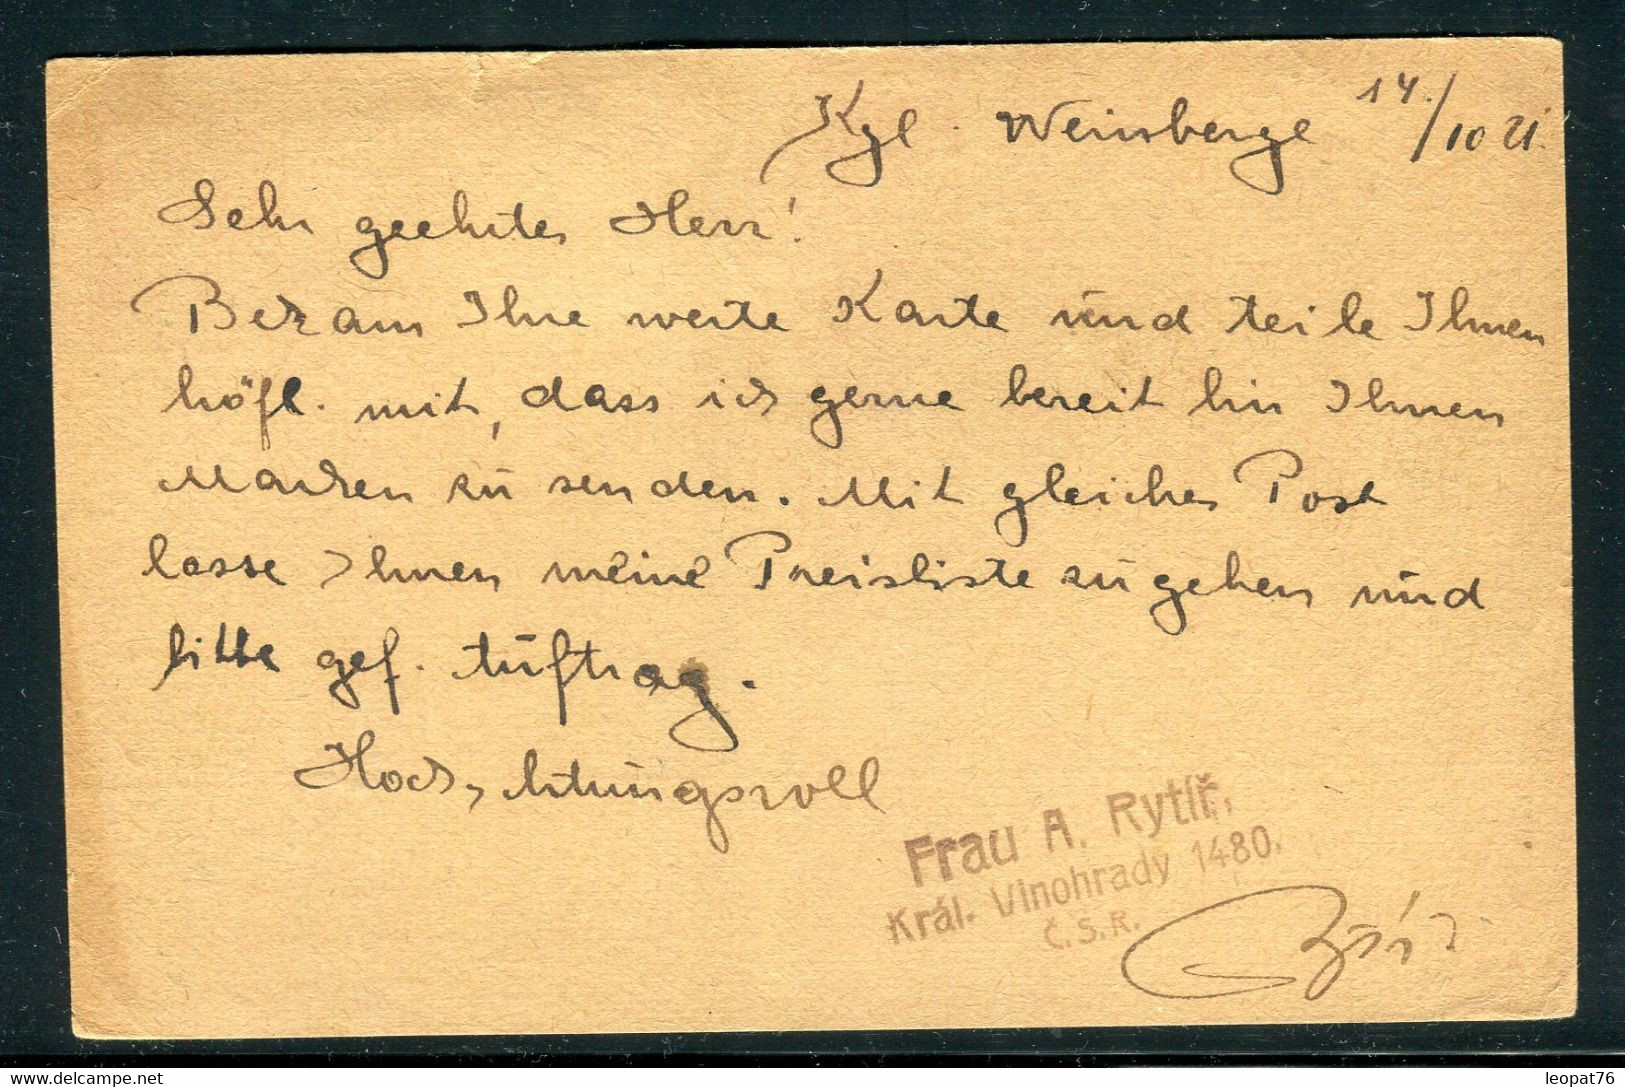 Kgl. Weinsberge 14./10 21.
Sehr geehrter Herr!
Bekam Ihre werte Karte und teile Ihnen
höfl. mit, dass ich gerne bereit bin Ihnen
Marken zu senden. Mit gleicher Post
lasse Ihnen meine Preisliste zugehen und
bitte gef. Auftrag.
Hochachtungsvoll
Frau A. Rytíř,
Král. Vinohrady 1480.
Č.S.R.
leopat76